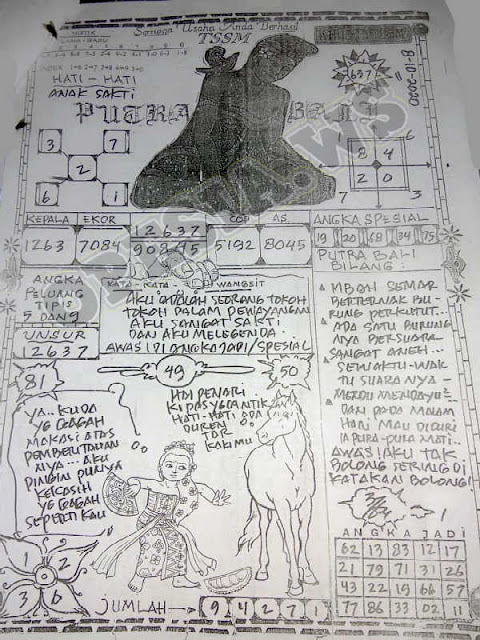 Semoga Usaha Anda Berhasil
TSSM
8-10-2020
637
HATI-HATI
ANAK SAKTI
PUTRA BALI
3 7
2
6 1
6 5
8 4
2 0
7 3
KEPALA EKOR COP AS.
1263 7084 12637 5192 8045
90845
ANGKA SPESIAL
19 20 68 34 75
ANGKA
PELUANG
TIPIS
5 DAN 9
UNSUR
12637
KATA - KATA WANGSIT
AKU ADALAH SEORANG TOKOH
TOKOH DALAM PEWAYANGAN
AKU SANGAT SAKTI
DAN AKU MELEGENDA.
AWAS ! DI ANGKA JADI/SPESIAL
PUTRA BALI
BILANG:
MBAH SEMAR
BERTERNAK BU-
RUNG PERKUTUT...
ADA SATU BURUNG
NYA BERSUARA
SANGAT ANEH...
SEWAKTU-WAK
TU SUARA NYA-
MERDU MENDAYU²
DAN PADA MALAM
HARI MAU DICURI
IA PURA-PURA MATI...
AWAS! AKU TAK
BOLONG SERING DI
KATAKAN BOLONG!
81
49
50
YA.. KUDA
YG GAGAH
MAKASI ATAS
PEMBERITAHUAN
NYA... AKU
PINGIN PUNYA
KEKASIH
YG GAGAH
SEPERTI KAU
HAI PENARI
KIPAS YG CANTIK
HATI-HATI ADA
DUREN
TDR
KAKIMU
1 2
3 6
JUMLAH → 9 4 2 7 1
ANGKA JADI
62 13 83 12 17
21 79 71 31 26
43 22 19 66 57
77 86 33 02 11